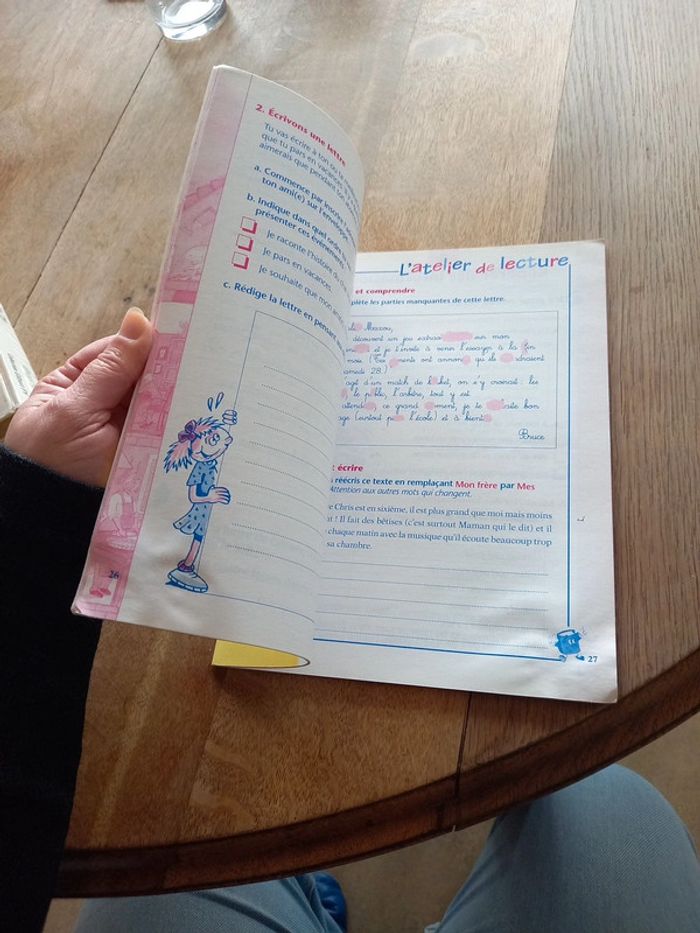 2. Écrivons une lettre
Tu vas écrire à ton
que tu pars en vacances
aimerais que pendant ton
a. Commence par inscrire
ton ami(e) sur l'enveloppe
b. Indique dans quel ordre
présenter ces événements.
Je raconte l'histoire
Je pars en vacances.
Je souhaite que mon
c. Rédige la lettre en pensant
26
L'atelier de lecture
et comprendre
plète les parties manquantes de cette lettre.
Mazzou,
découvert un jeu extraor sur mon
et je t'invite à venir l'essayer à la fin
mois. (Tes ents ont annon qu'ils draient
amedi 28.)
agit d'un match de ket, on s'y croirait : les
, le p blic, l'arbitre, tout y est
attend ce grand ment, je te aite bon
age (surtout p l'école) et à bient
Bruce
écrire
réécris ce texte en remplaçant Mon frère par Mes
Attention aux autres mots qui changent.
e Chris est en sixième, il est plus grand que moi mais moins
t ! Il fait des bêtises (c'est surtout Maman qui le dit) et il
chaque matin avec la musique qu'il écoute beaucoup trop
sa chambre.
27